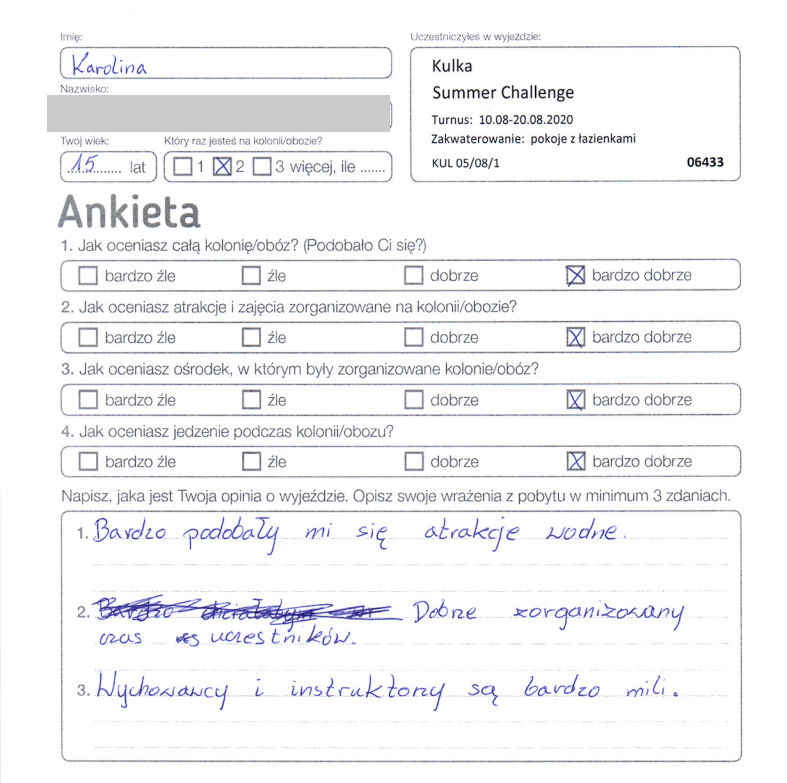 Imię:
Karolina
Nazwisko:
Twój wiek:
15 lat
Który raz jesteś na kolonii/obozie?
1 2 3 więcej, ile .......
Uczestniczyłeś w wyjeździe:
Kulka
Summer Challenge
Turnus: 10.08-20.08.2020
Zakwaterowanie: pokoje z łazienkami
KUL 05/08/1 06433
Ankieta
1. Jak oceniasz całą kolonię/obóz? (Podobało Ci się?)
bardzo źle źle dobrze bardzo dobrze
2. Jak oceniasz atrakcje i zajęcia zorganizowane na kolonii/obozie?
bardzo źle źle dobrze bardzo dobrze
3. Jak oceniasz ośrodek, w którym były zorganizowane kolonie/obóz?
bardzo źle źle dobrze bardzo dobrze
4. Jak oceniasz jedzenie podczas kolonii/obozu?
bardzo źle źle dobrze bardzo dobrze
Napisz, jaka jest Twoja opinia o wyjeździe. Opisz swoje wrażenia z pobytu w minimum 3 zdaniach.
1. Bardzo podobały mi się atrakcje wodne.
2. Dobrze zorganizowany
czas uczestników.
3. Wychowawcy i instruktorzy są bardzo mili.